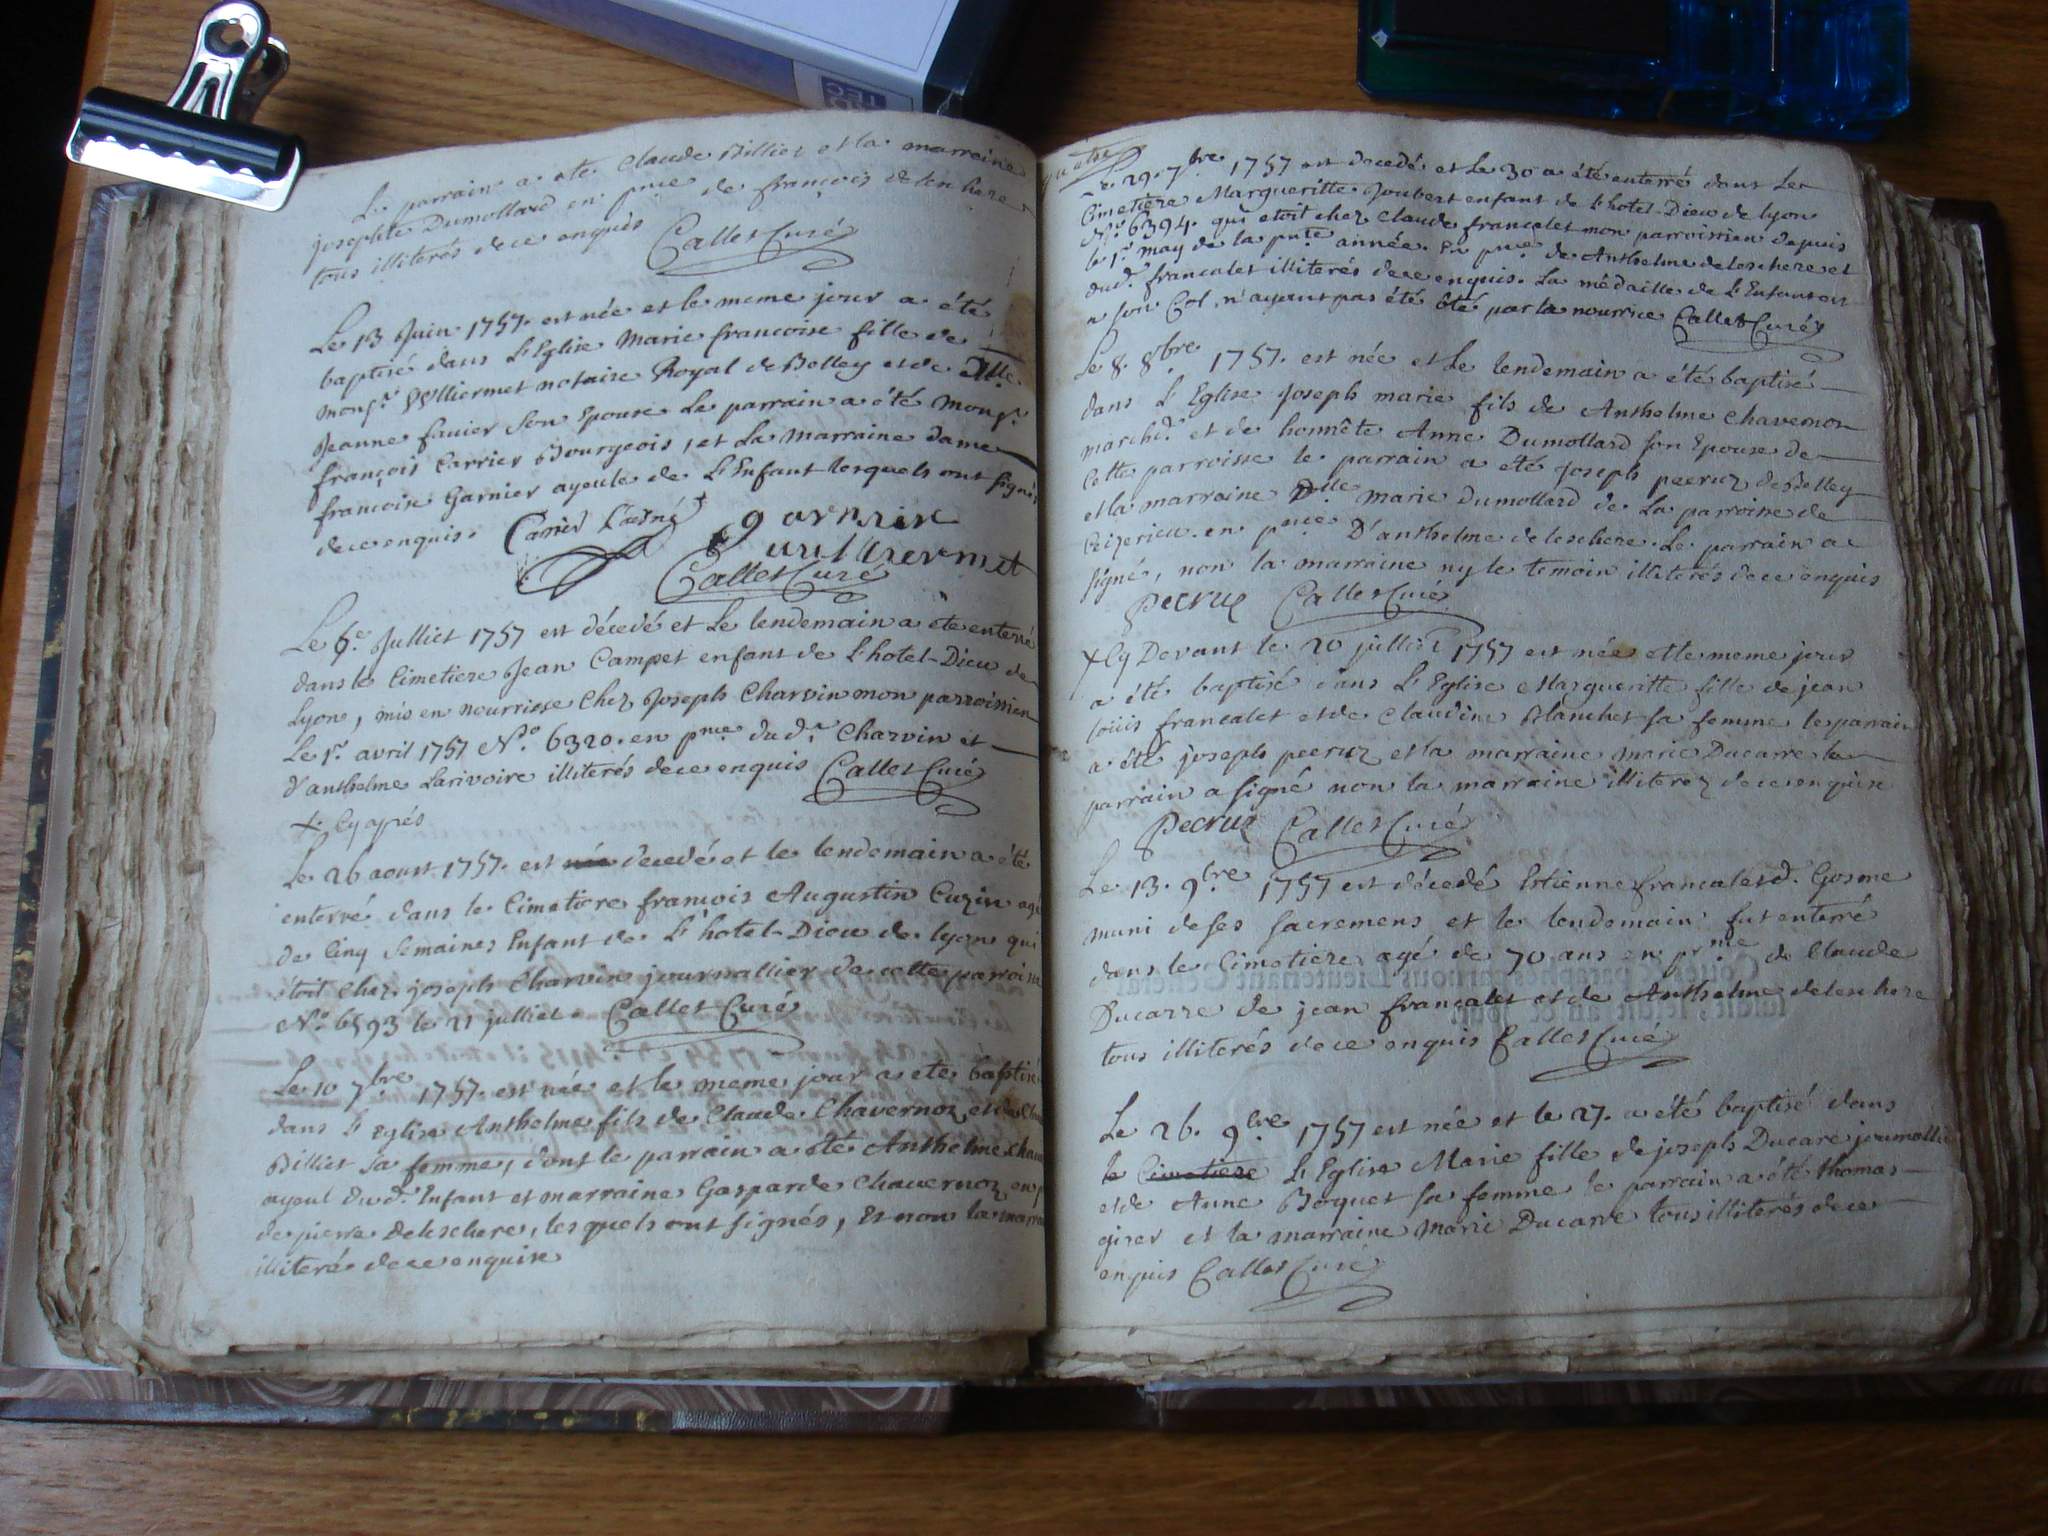 Le parrain a ete Claude Billiet et la marraine
josephte Dumollard en pnce de françois delechere
tous illiterés de ce enquis Callet Curé
Le 13 Juin 1757. est née et le meme jour a été
baptisé dans L'Eglise Marie francoise fille de
monsr. Wlliermet notaire Royal de Belley et de Dlle.
Jeanne favier son Epouse Le parrain a été monsr.
françois Carrier Bourgeois, et La Marraine dame
francoise Garnier ayeule de L'Enfant lesquels ont signés
de ce enquis. Carrier L'aisné garnier
vuilliermet
Callet Curé
Le 6e. Julliet 1757 est décedé et Le lendemain a ete enterré
dans le Cimetiere Jean Campet enfant de L'hotel-Dieu de
Lyon, mis en nourrisse Chez Joseph Charvin mon parroissien
Le 1r. avril 1757 No. 6320. en pnce du dt. Charvin et
d'anthelme Larivoire illiterés de ce enquis Callet Curé
+. Cy aprés
Le 26 aoust 1757. est née decedé et le lendemain a été
enterré dans le Cimetiere francois Augustin Cuzin agé
de Cinq Semaines Enfant de L'hotel-Dieu de lyon qui
étoit Chez joseph Charvin journallier de cette paroisse
No. 6593 le 21 julliet. Callet Curé
Le 10 7bre 1757. est née et le meme jour a ete baptisé
dans L'eglise Anthelme fils de Claude Chavernoz et de
Billiet sa femme, dont le parrain a été Anthelme
ayeul du d. Enfant et marraine Gasparde Chavernoz en
de pierre Delechere, lesquels ont signés, Et non la
illiteré de ce enquise
quatre
Le 29. 7bre 1757 est decedé et Le 30 a été enterré dans Le
Cimetiere Margueritte Joubert enfant de L'hotel-Dieu de lyon
No. 6394. qui etoit chez Claude francalet mon parroissien depuis
le 1r. may de la pnte année. En pnce. de Anthelme delechere et
dud. francalet illiterés de ce enquis. La médaille de L'Enfant
a son Col n'ayant pas été ôté par la nourrice Callet Curé
Le 8. 8bre 1757. est née et Le lendemain a été baptisé
dans L'Eglise Joseph marie fils de Anthelme Chavernoz
marchd. et de honnête Anne Dumollard son Epouse de
Cette parroisse le parrain a eté Joseph pecruz de Belley
et la marraine Dlle Marie Dumollard de La parroisse de
Ceizerieu. en pnce D'anthelme delechere. Le parrain a
signé, non la marraine ny le temoin illiterés de ce enquis
Pecruz Callet Curé
+ Cy Devant le 20 julliet 1757 est née et le meme jour
a été baptisé dans L'Eglise Margueritte fille de jean
loüis francalet et de Claudine Blanchet sa femme le parrain
a été joseph pecruz et la marraine marie Ducarre le
parrain a signé non la marraine illiterez de ce enquise
Pecruz Callet Curé
Le 13. 9bre 1757 est décedé Estienne francalet d. Gosme
muni de ses sacremens et le lendemain fut enterré
dans le Cimetiere agé de 70 ans en prnce de Claude
Ducarre de jean françalet et de Anthelme delechere
tous illiterés de ce enquis Callet Curé
Le 26. 9bre 1757 est née et le 27. a été baptisé dans
le Cimetiere L'Eglise Marie fille de joseph Ducare journallier
et de Anne Boquet sa femme le parrain a été thomas
girer et la marraine Marie Ducarre tous illiterés de ce
enquis Callet Curé